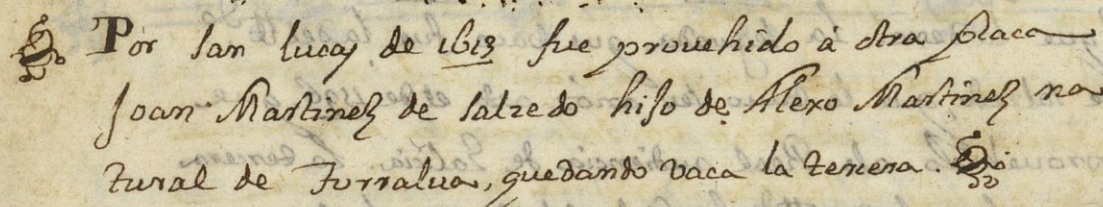 Por san lucas de 1613 fue prouehido à otra placa
Joan Martinez de salzedo hijo de Alexo Martinez na
tural de Torralua, quedando vaca la tercera.